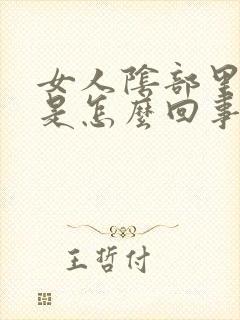 女人陰部里
是怎麼回事
王哲付